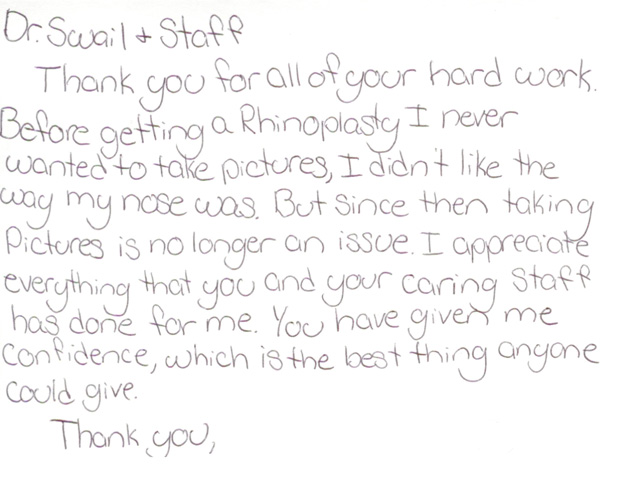 Dr. Swail + Staff
Thank you for all of your hard work.
Before getting a Rhinoplasty I never
wanted to take pictures, I didn't like the
way my nose was. But since then taking
Pictures is no longer an issue. I appreciate
everything that you and your caring Staff
has done for me. You have given me
Confidence, which is the best thing anyone
could give.
Thank you,